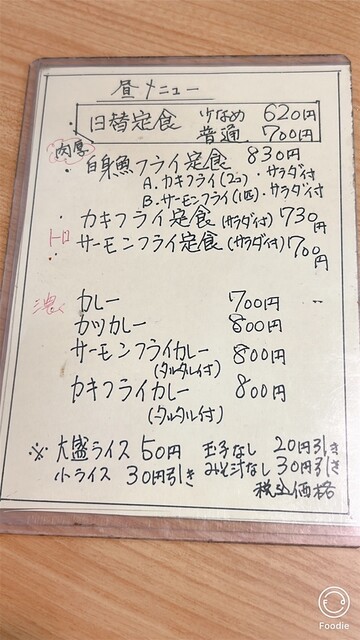 昼メニュー
日替定食 少なめ 620円
普通 700円
肉厚
・白身魚フライ定食 830円
A.カキフライ(2コ)・サラダ付
B.サーモンフライ(1匹)・サラダ付
・カキフライ定食(サラダ付) 730円
トロ
・サーモンフライ定食(サラダ付) 700円
カレー 700円
カツカレー 800円
サーモンフライカレー 800円
(タルタル付)
カキフライカレー 800円
(タルタル付)
※大盛ライス 50円 玉子なし 20円引き
小ライス 30円引き みそ汁なし 30円引き
税込価格
Foodie